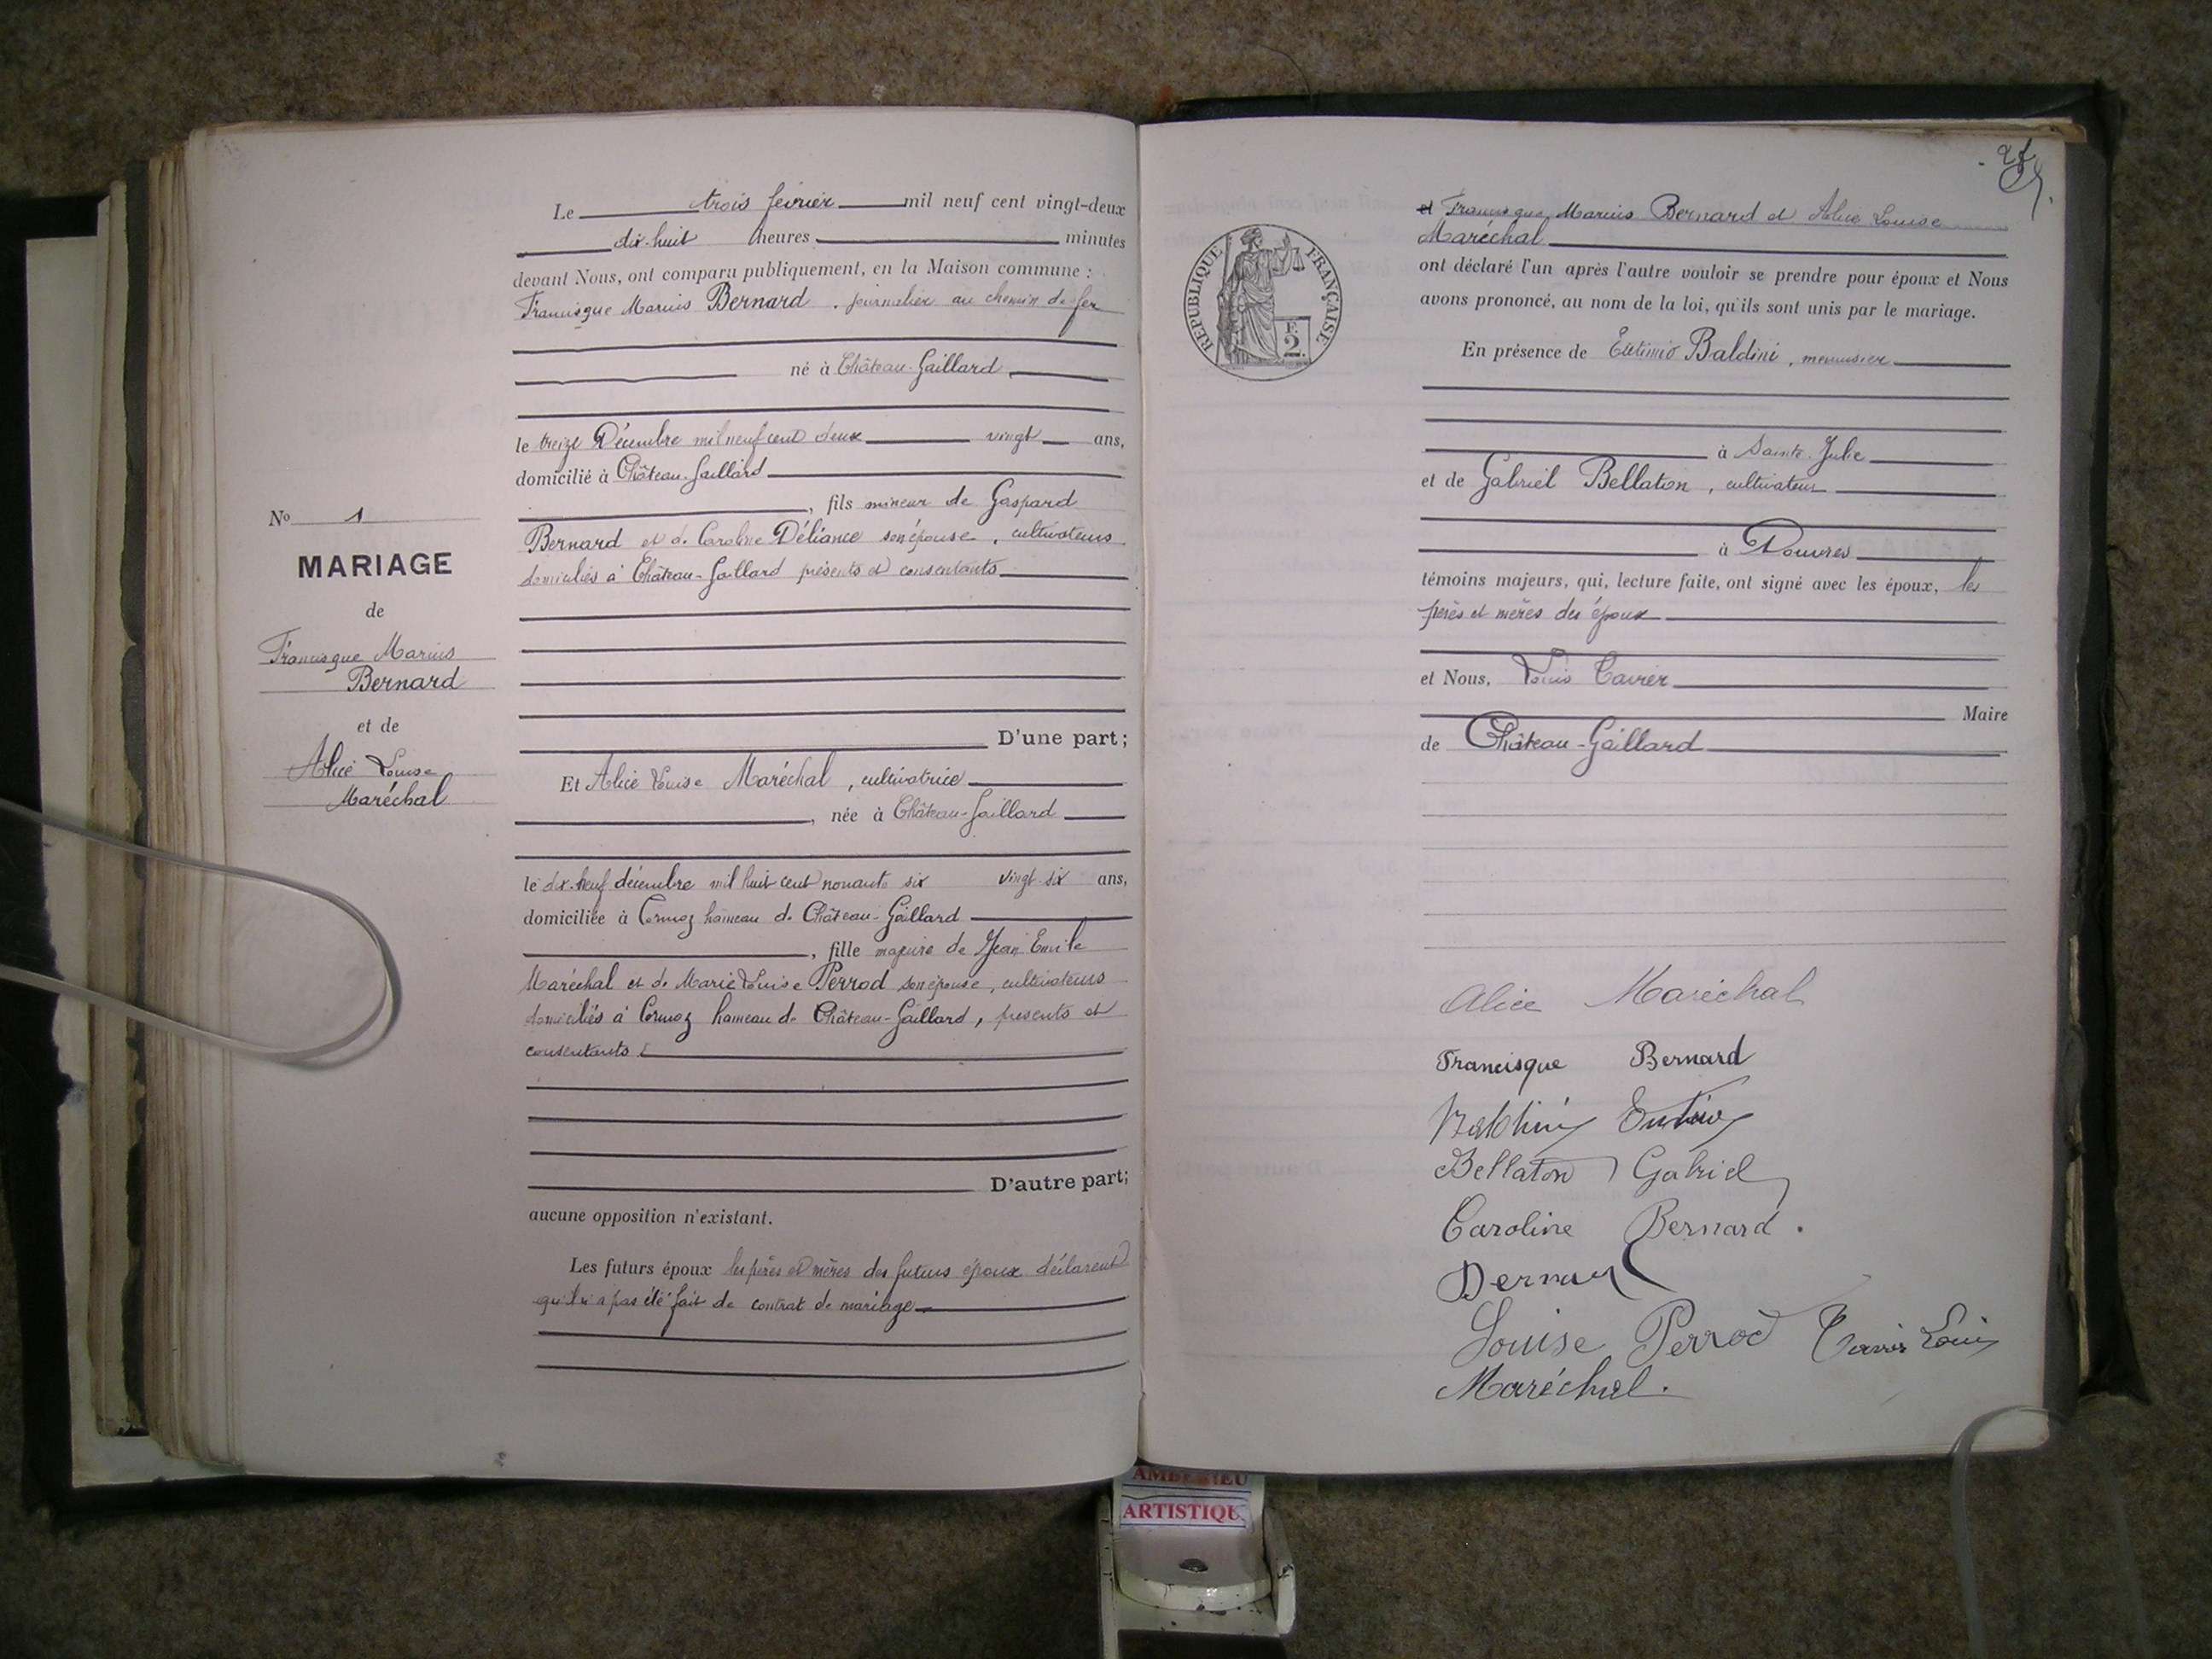 Le trois février mil neuf cent vingt-deux
dix-huit heures minutes
devant Nous, ont comparu publiquement, en la Maison commune :
Francisque Marius Bernard, journalier au chemin de fer
né à Château-Gaillard
le treize Décembre mil neuf cent deux vingt ans,
domicilié à Château-Gaillard
, fils mineur de Gaspard
Bernard et de Caroline Déliance son épouse, cultivateurs
domiciliés à Château-Gaillard présents et consentants
D'une part;
Et Alice Louise Maréchal, cultivatrice
, née à Château-Gaillard
le dix-neuf décembre mil huit cent nonante six vingt-six ans,
domiciliée à Cormoz hameau de Château-Gaillard
, fille majeure de Jean Emile
Maréchal et de Marie Louise Perrod son épouse, cultivateurs
domiciliés à Cormoz hameau de Château-Gaillard, présents et
consentants
D'autre part;
aucune opposition n'existant.
Les futurs époux les pères et mères des futurs époux déclarent
qu'il n'a pas été fait de contrat de mariage
No 1
MARIAGE
de
Francisque Marius
Bernard
et de
Alice Louise
Maréchal
RÉPUBLIQUE FRANÇAISE
F.
2.
et Francisque Marius Bernard et Alice Louise
Maréchal
ont déclaré l'un après l'autre vouloir se prendre pour époux et Nous
avons prononcé, au nom de la loi, qu'ils sont unis par le mariage.
En présence de Eutimio Baldini, menuisier
à Sainte-Julie
et de Gabriel Bellaton, cultivateur
à Douvres
témoins majeurs, qui, lecture faite, ont signé avec les époux, les
pères et mères des époux
et Nous, Louis
Maire
de Château-Gaillard
Alice Maréchal
Francisque Bernard
Baldini
Bellaton Gabriel
Caroline Bernard.
Bernard
Louise Perrod Louis
Maréchal.
AMBERIEU
ARTISTIQU